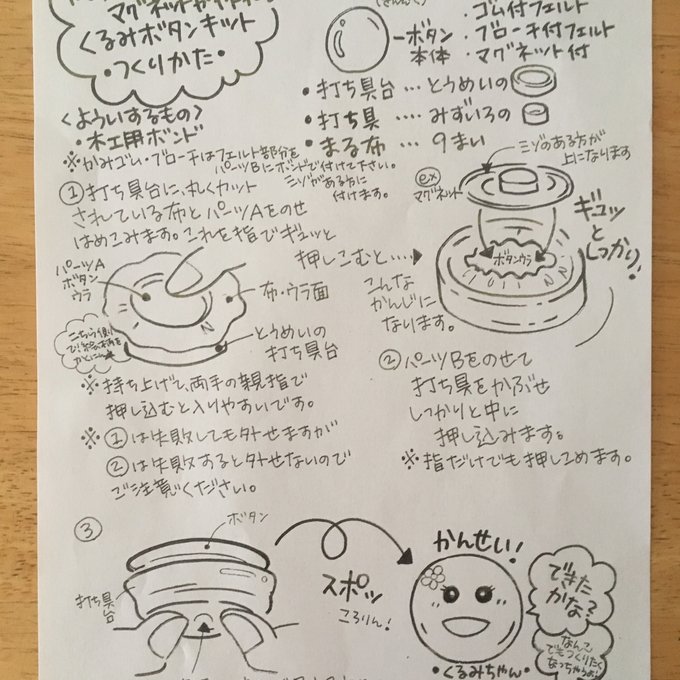 くるみボタンキット
・つくりかた・
ボタン
本体
・ゴム付フェルト
・ブローチ付フェルト
・マグネット付
・打ち具台…とうめいの
・打ち具…みずいろの
・まる布…9まい
<よういするもの>
・木工用ボンド
※かみゴム・ブローチはフェルト部分を
パーツBにボンドで付けて下さい。
ミゾがある方に
付けます。
①打ち具台に、丸くカット
されている布とパーツAをのせ
はめこみます。これを指でギュッと
押しこむと‥‥
こんな
かんじに
なります。
パーツA
ボタン
ウラ
布・ウラ面
とうめいの
打ち具台
ex
マグネット
ミゾのある方が
上になります
ボタンウラ
ギュッ
と
しっかり!
※持ち上げて、両手の親指で
押し込むと入りやすいです。
※①は失敗しても外せますが
②は失敗すると外せないので
ご注意ください。
②パーツBをのせて
打ち具をかぶせ
しっかりと中に
押し込みます。
※指だけでも押しこめます。
③
ボタン
打ち具
台
スポッ
ころりん!
かんせい!
・くるみちゃん・
できた
かな?
なんこ
でもつくりたく
なっちゃうよ!